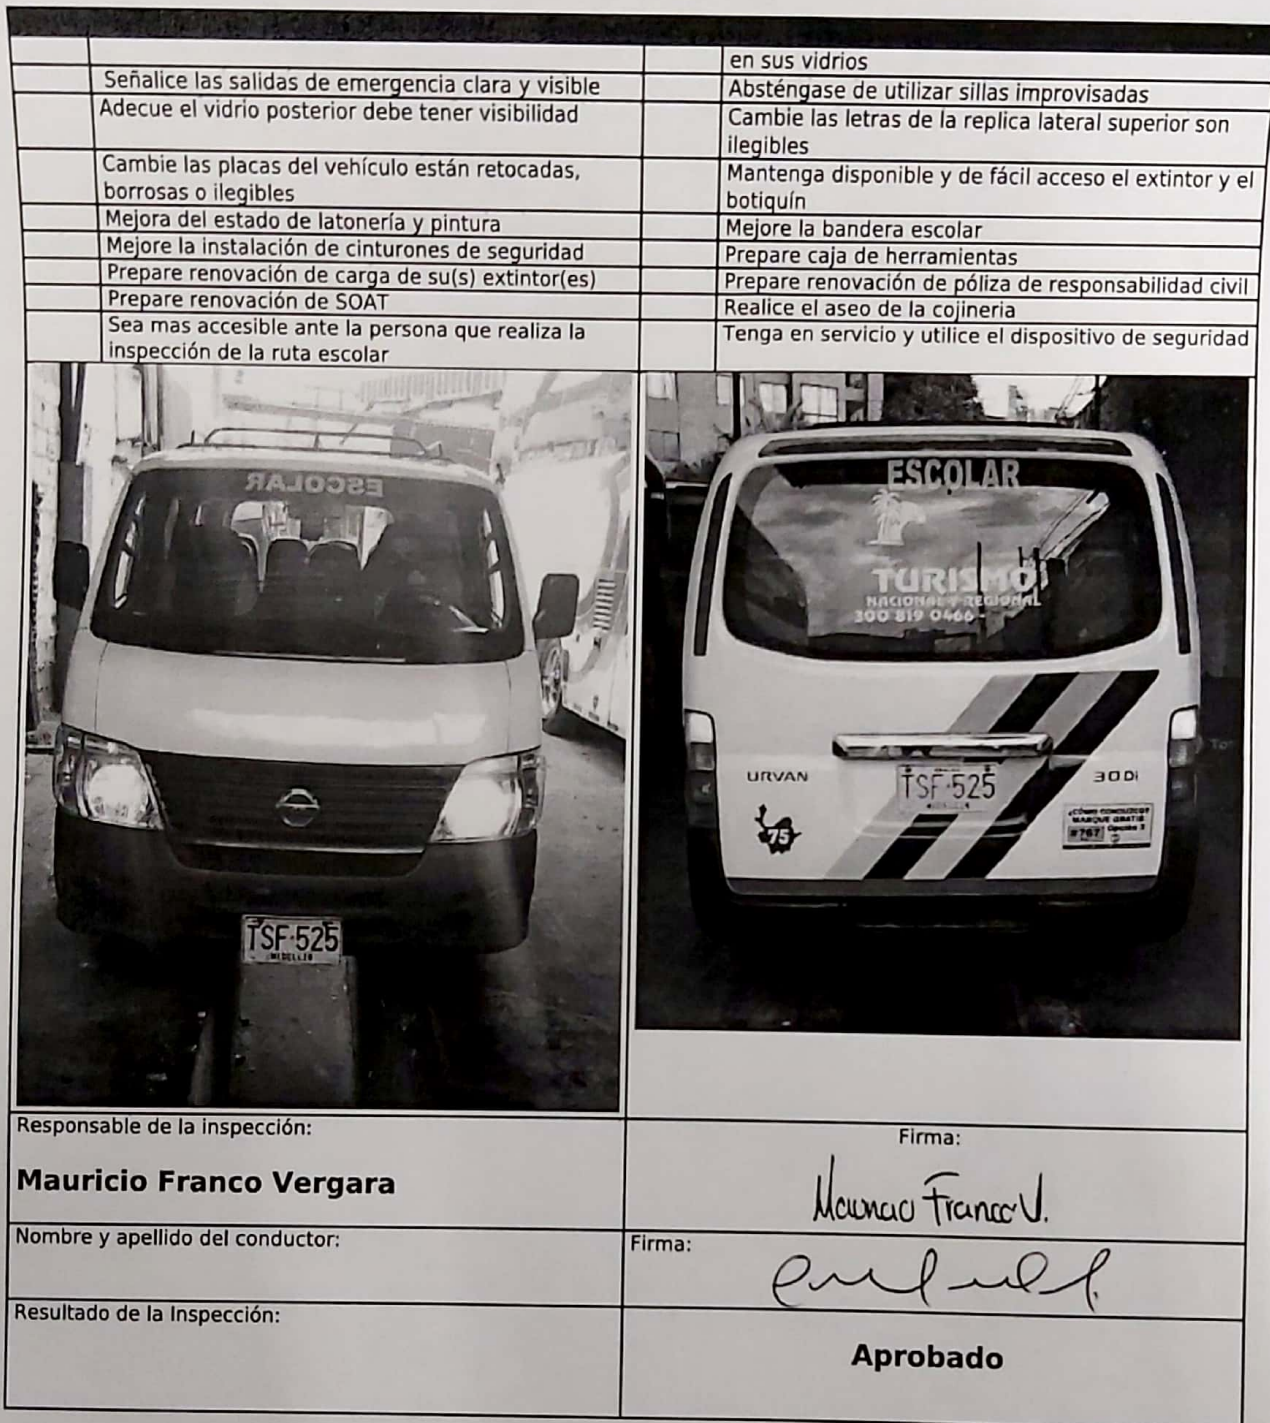 en sus vidrios
Señalice las salidas de emergencia clara y visible
Absténgase de utilizar sillas improvisadas
Adecue el vidrio posterior debe tener visibilidad
Cambie las letras de la replica lateral superior son
ilegibles
Cambie las placas del vehículo están retocadas,
borrosas o ilegibles
Mantenga disponible y de fácil acceso el extintor y el
botiquín
Mejora del estado de latonería y pintura
Mejore la bandera escolar
Mejore la instalación de cinturones de seguridad
Prepare caja de herramientas
Prepare renovación de carga de su(s) extintor(es)
Prepare renovación de póliza de responsabilidad civil
Prepare renovación de SOAT
Realice el aseo de la cojineria
Sea mas accesible ante la persona que realiza la
inspección de la ruta escolar
Tenga en servicio y utilice el dispositivo de seguridad
ESCOLAR
TSF·525
MEDELLIN
ESCOLAR
TURISMO
NACIONAL Y REGIONAL
300 819 0466
URVAN
TSF·525
MEDELLIN
30 Di
75
¿CÓMO CONDUZCO?
MARQUE GRATIS
#767 Opción 3
Responsable de la inspección:
Mauricio Franco Vergara
Firma:
Mauricio Franco V.
Nombre y apellido del conductor:
Firma:
Resultado de la Inspección:
Aprobado